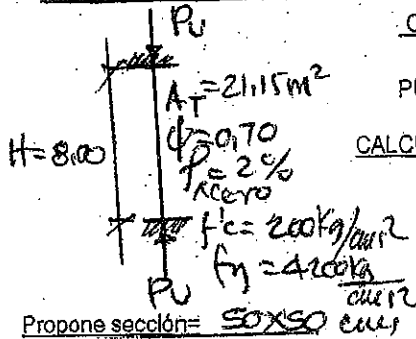 Pu
C
AT=21,15m²
PI
ϕ=0,70
H=8,00
CALCU
ρ=2%
Acero
f'c=200Kg/cm,2
fy=4200Kg/cm,2
Pu
Propone sección= 50X50 cm,